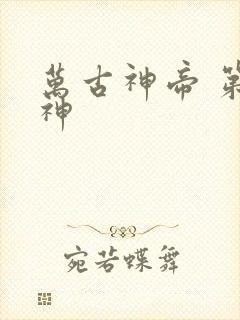 萬古神帝 第
神
宛若蝶舞